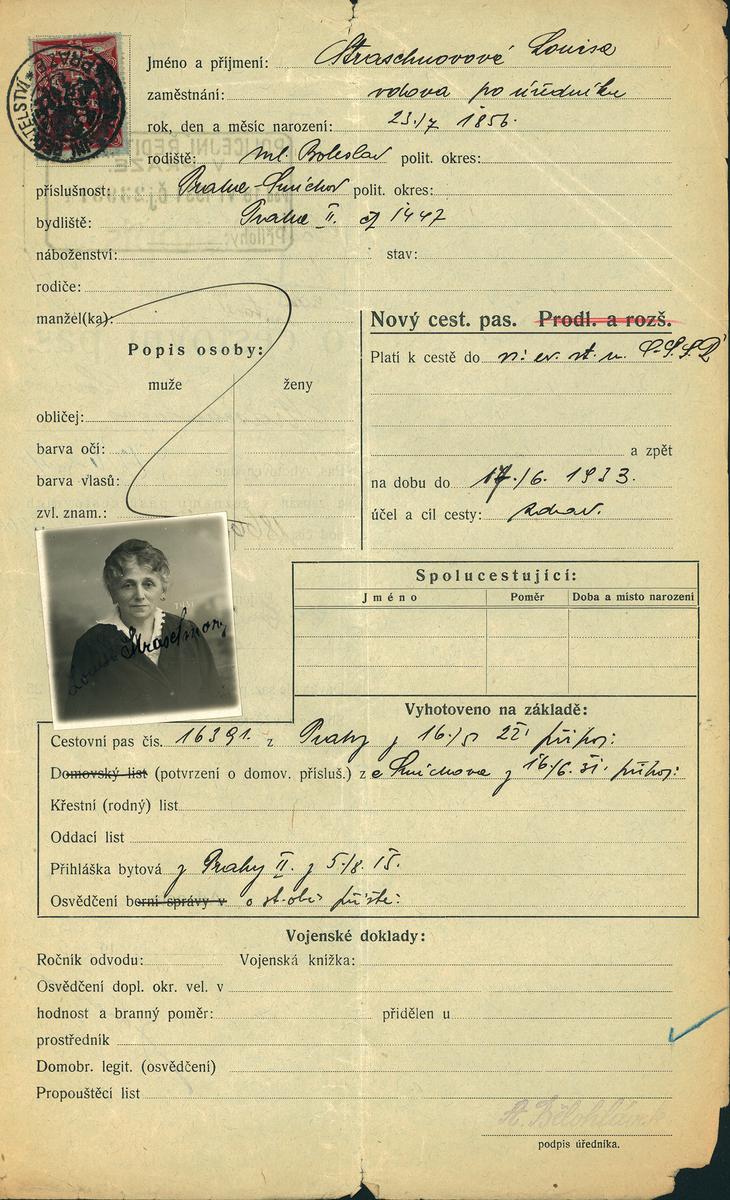 Jméno a příjmení: Straschnovové Louisa
zaměstnání: vdova po úředníku
rok, den a měsíc narození: 23./7 1856.
rodiště: ml. Boleslav polit. okres:
příslušnost: Praha-Smíchov polit. okres:
bydliště: Praha II. čp 1447
náboženství: stav:
rodiče:
manžel(ka):
Popis osoby:
muže ženy
obličej:
barva očí:
barva vlasů:
zvl. znam.:
Nový cest. pas. Prodl. a rozš.
Platí k cestě do ev. st. Č.S.R
a zpět
na dobu do 17./6. 1933.
účel a cíl cesty: zdrav.
Louise Straschnov
Spolucestující:
Jméno Poměr Doba a místo narození
Vyhotoveno na základě:
Cestovní pas čís. 16391. z Prahy z 16./5
Domovský list (potvrzení o domov. přísluš.) z e Smíchova z 16/6. 31. připoj:
Křestní (rodný) list
Oddací list
Přihláška bytová z Prahy II. z 5./8. 15.
Osvědčení berní správy v o st. obč.
Vojenské doklady:
Ročník odvodu: Vojenská knížka:
Osvědčení dopl. okr. vel. v
hodnost a branný poměr: přidělen u
prostředník
Domobr. legit. (osvědčení)
Propouštěcí list
podpis úředníka.